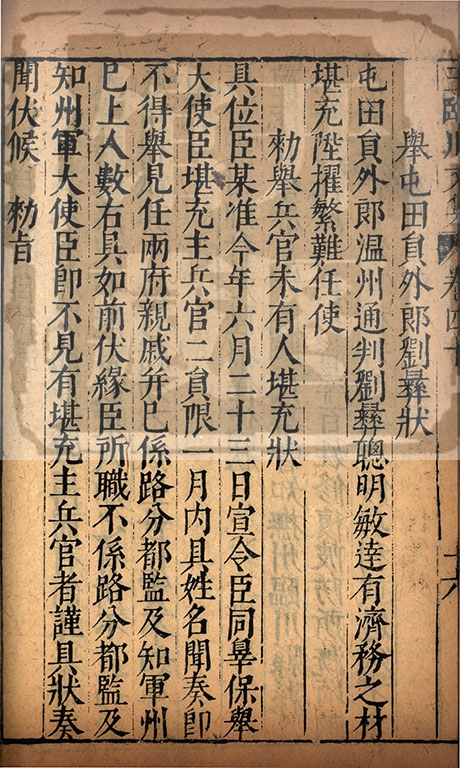 王臨川文集 卷四十 十六
舉屯田貟外郎劉彝狀
屯田貟外郎温州通判劉彝聰明敏達有濟務之材
堪充陞擢繁難任使
勑舉兵官未有人堪充狀
具位臣某准今年六月二十三日宣令臣同辠保舉
大使臣堪充主兵官二貟限一月内具姓名聞奏即
不得舉見任兩府親戚并已係路分都監及知軍州
已上人數右具如前伏緣臣所職不係路分都監及
知州軍大使臣即不見有堪充主兵官者謹具狀奏
聞伏候 勑旨